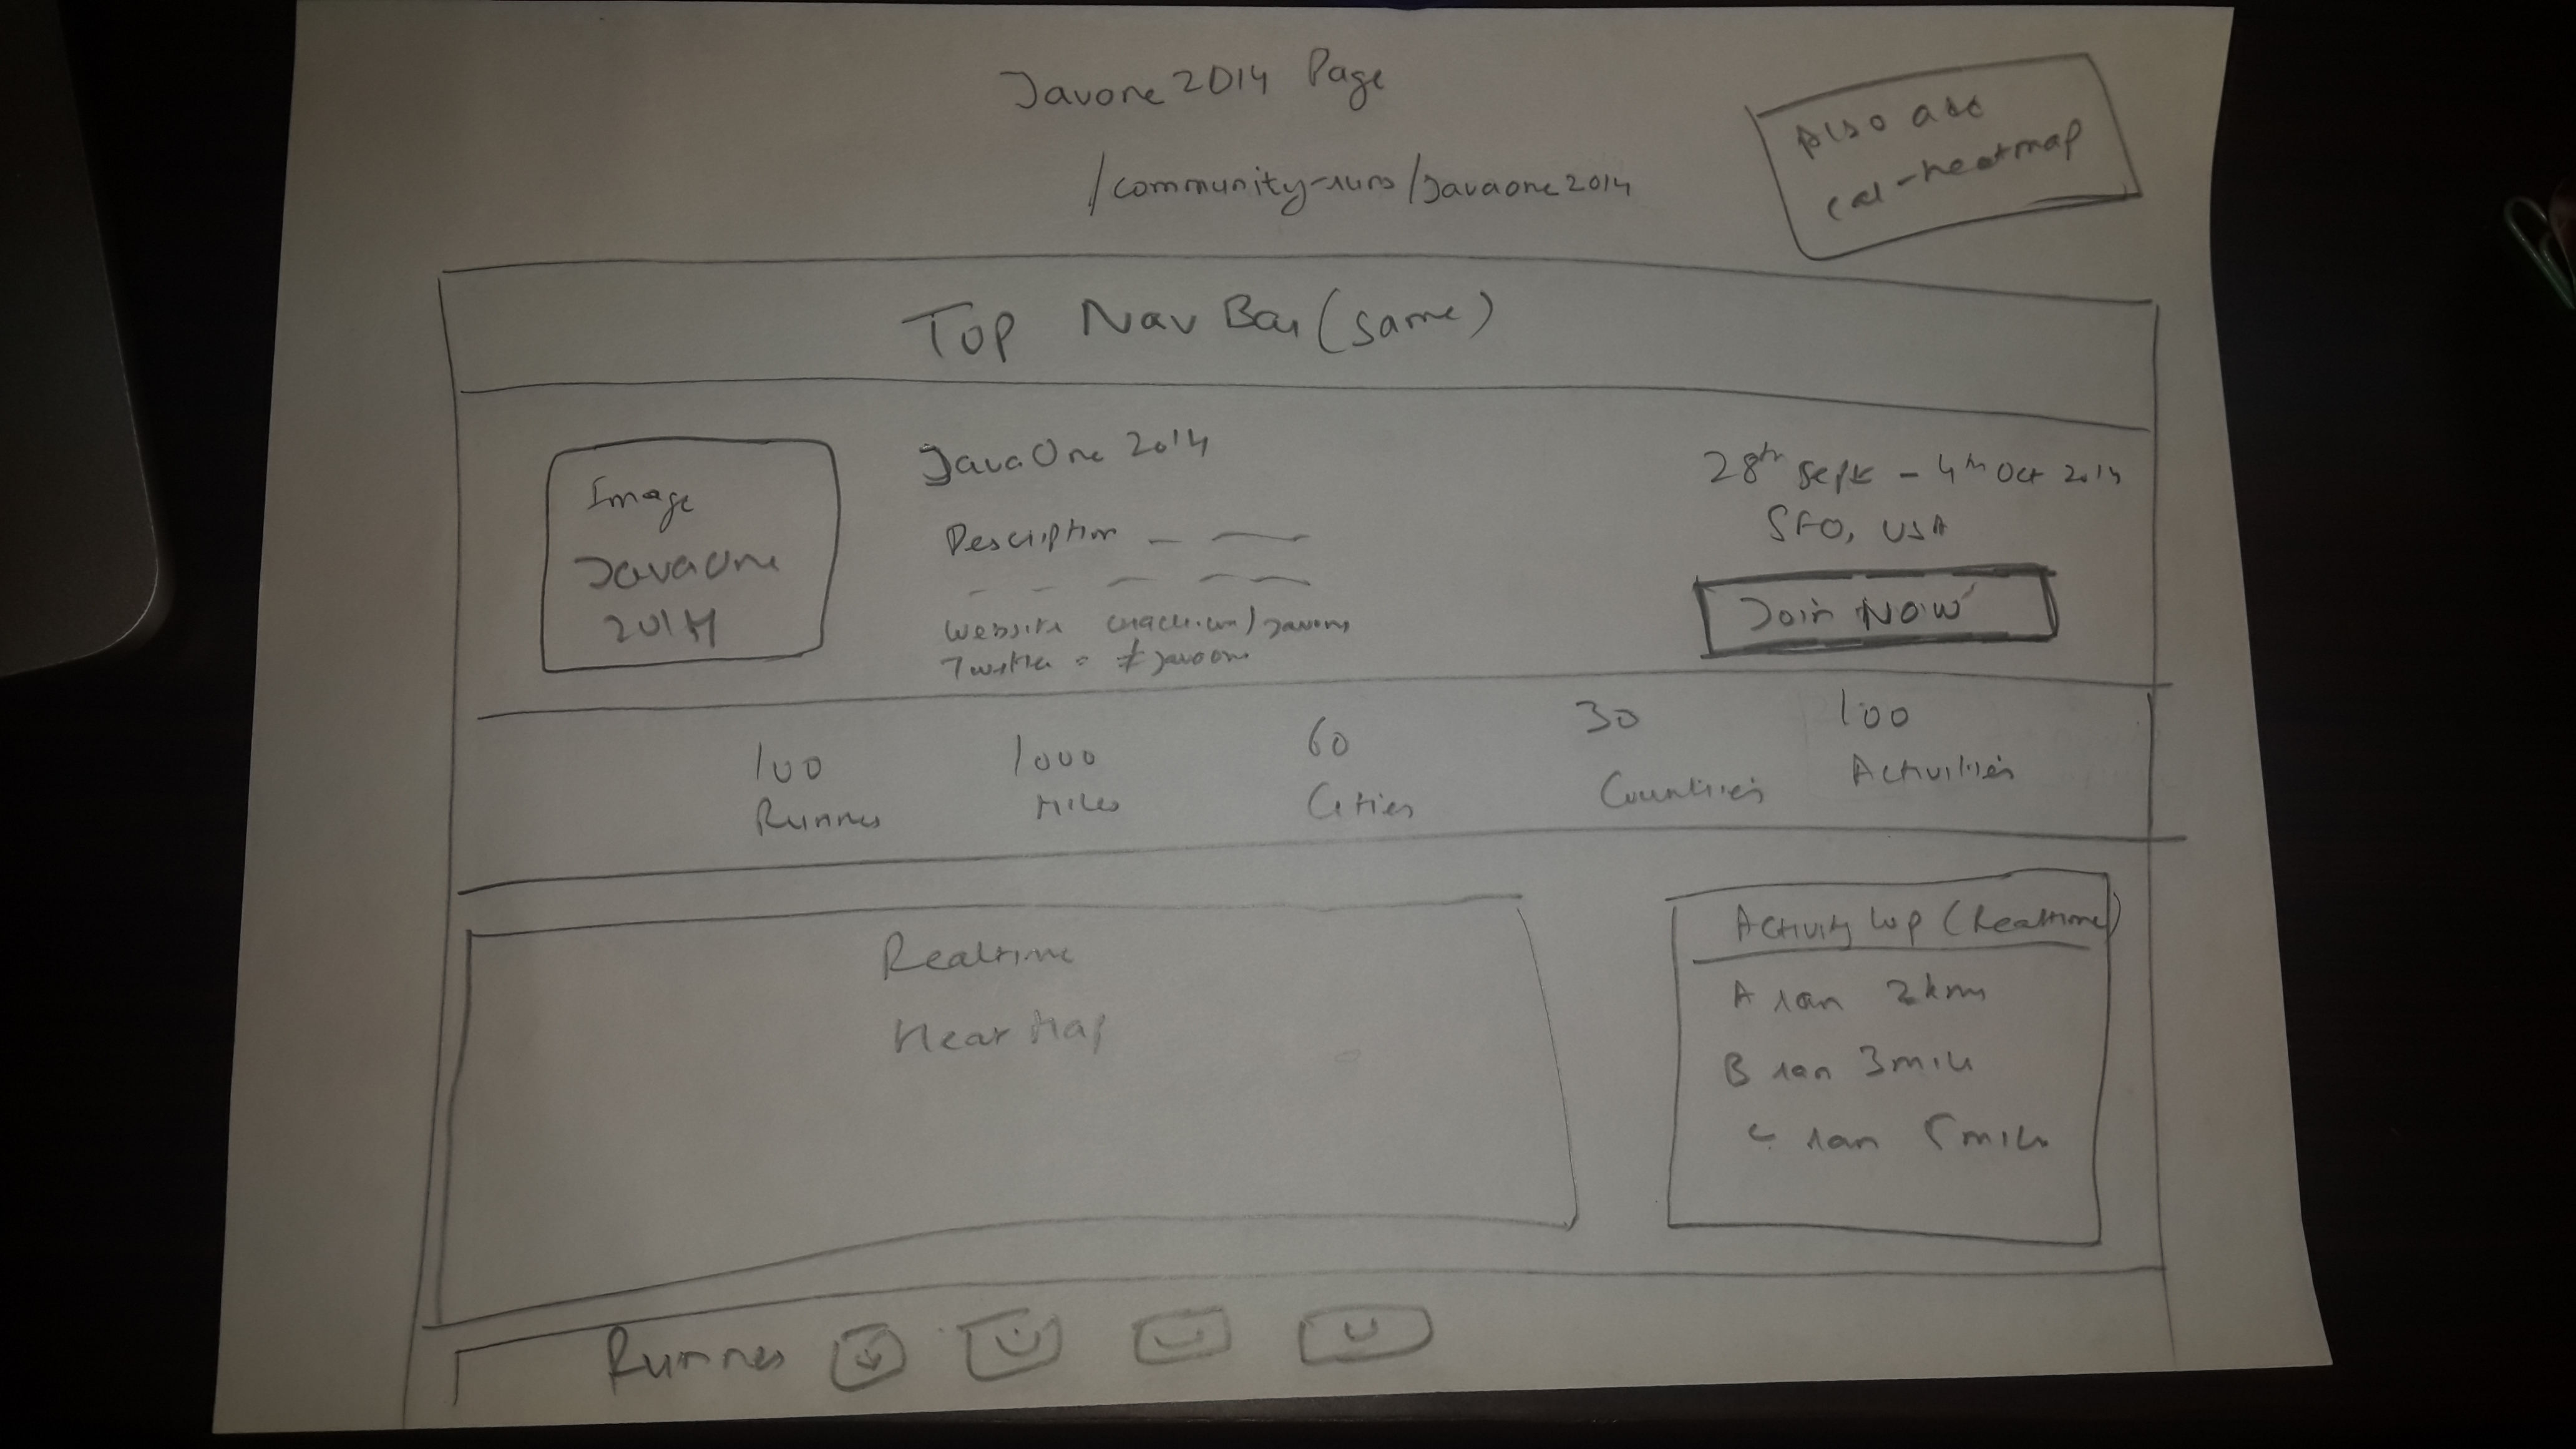 Javone 2014 Page
/community-runs/Javaone2014
Also add
cal-heatmap
Top Nav Bar (same)
Image
JavaOne
2014
JavaOne 2014
Description
Website
Twitter = #javaone
28th Sept - 4th Oct 2014
SFO, USA
Join Now
100
Runners
1000
Miles
60
Cities
30
Countries
100
Activities
Realtime
Heat Map
Activity (Realtime)
A ran 2 kms
B ran 3 mile
C ran 5 mile
Runners